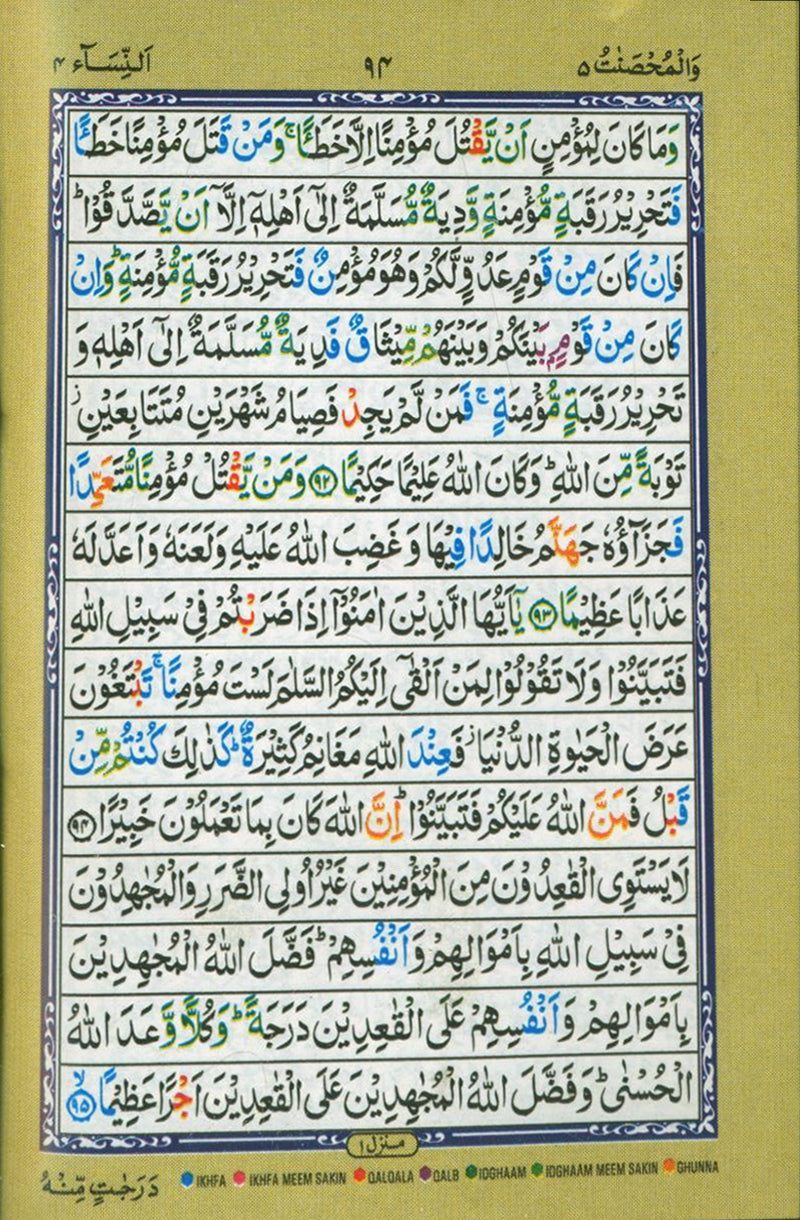 وَالْمُحْصَنٰتُ ۵ ۹۴ اَلنِّسَآء ۴
وَمَا كَانَ لِمُؤْمِنٍ اَنْ يَّقْتُلَ مُؤْمِنًا اِلَّا خَطَـًٔا ۚ وَمَنْ قَتَلَ مُؤْمِنًا خَطَـًٔا
فَتَحْرِيْرُ رَقَبَةٍ مُّؤْمِنَةٍ وَّدِيَةٌ مُّسَلَّمَةٌ اِلٰٓى اَهْلِهٖۤ اِلَّاۤ اَنْ يَّصَّدَّقُوْا ؕ
فَاِنْ كَانَ مِنْ قَوْمٍ عَدُوٍّ لَّكُمْ وَهُوَ مُؤْمِنٌ فَتَحْرِيْرُ رَقَبَةٍ مُّؤْمِنَةٍ ؕ وَاِنْ
كَانَ مِنْ قَوْمٍۭ بَيْنَكُمْ وَبَيْنَهُمْ مِّيْثَاقٌ فَدِيَةٌ مُّسَلَّمَةٌ اِلٰٓى اَهْلِهٖ وَ
تَحْرِيْرُ رَقَبَةٍ مُّؤْمِنَةٍ ۚ فَمَنْ لَّمْ يَجِدْ فَصِيَامُ شَهْرَيْنِ مُتَتَابِعَيْنِ ز
تَوْبَةً مِّنَ اللّٰهِ ؕ وَكَانَ اللّٰهُ عَلِيْمًا حَكِيْمًا ۹۲ وَمَنْ يَّقْتُلْ مُؤْمِنًا مُّتَعَمِّدًا
فَجَزَآؤُهٗ جَهَنَّمُ خَالِدًا فِيْهَا وَغَضِبَ اللّٰهُ عَلَيْهِ وَلَعَنَهٗ وَاَعَدَّ لَهٗ
عَذَابًا عَظِيْمًا ۹۳ يٰۤاَيُّهَا الَّذِيْنَ اٰمَنُوْۤا اِذَا ضَرَبْتُمْ فِيْ سَبِيْلِ اللّٰهِ
فَتَبَيَّنُوْا وَلَا تَقُوْلُوْا لِمَنْ اَلْقٰٓى اِلَيْكُمُ السَّلٰمَ لَسْتَ مُؤْمِنًا ۚ تَبْتَغُوْنَ
عَرَضَ الْحَيٰوةِ الدُّنْيَا ز فَعِنْدَ اللّٰهِ مَغَانِمُ كَثِيْرَةٌ ؕ كَذٰلِكَ كُنْتُمْ مِّنْ
قَبْلُ فَمَنَّ اللّٰهُ عَلَيْكُمْ فَتَبَيَّنُوْا ؕ اِنَّ اللّٰهَ كَانَ بِمَا تَعْمَلُوْنَ خَبِيْرًا ۹۴
لَا يَسْتَوِي الْقٰعِدُوْنَ مِنَ الْمُؤْمِنِيْنَ غَيْرُ اُولِي الضَّرَرِ وَالْمُجٰهِدُوْنَ
فِيْ سَبِيْلِ اللّٰهِ بِاَمْوَالِهِمْ وَاَنْفُسِهِمْ ؕ فَضَّلَ اللّٰهُ الْمُجٰهِدِيْنَ
بِاَمْوَالِهِمْ وَاَنْفُسِهِمْ عَلَى الْقٰعِدِيْنَ دَرَجَةً ؕ وَكُلًّا وَّعَدَ اللّٰهُ
الْحُسْنٰى ؕ وَفَضَّلَ اللّٰهُ الْمُجٰهِدِيْنَ عَلَى الْقٰعِدِيْنَ اَجْرًا عَظِيْمًا ۹۵ ۙ
منزل ۱
دَرَجٰتٍ مِّنْهُ
IKHFA IKHFA MEEM SAKIN QALQALA QALB IDGHAAM IDGHAAM MEEM SAKIN GHUNNA